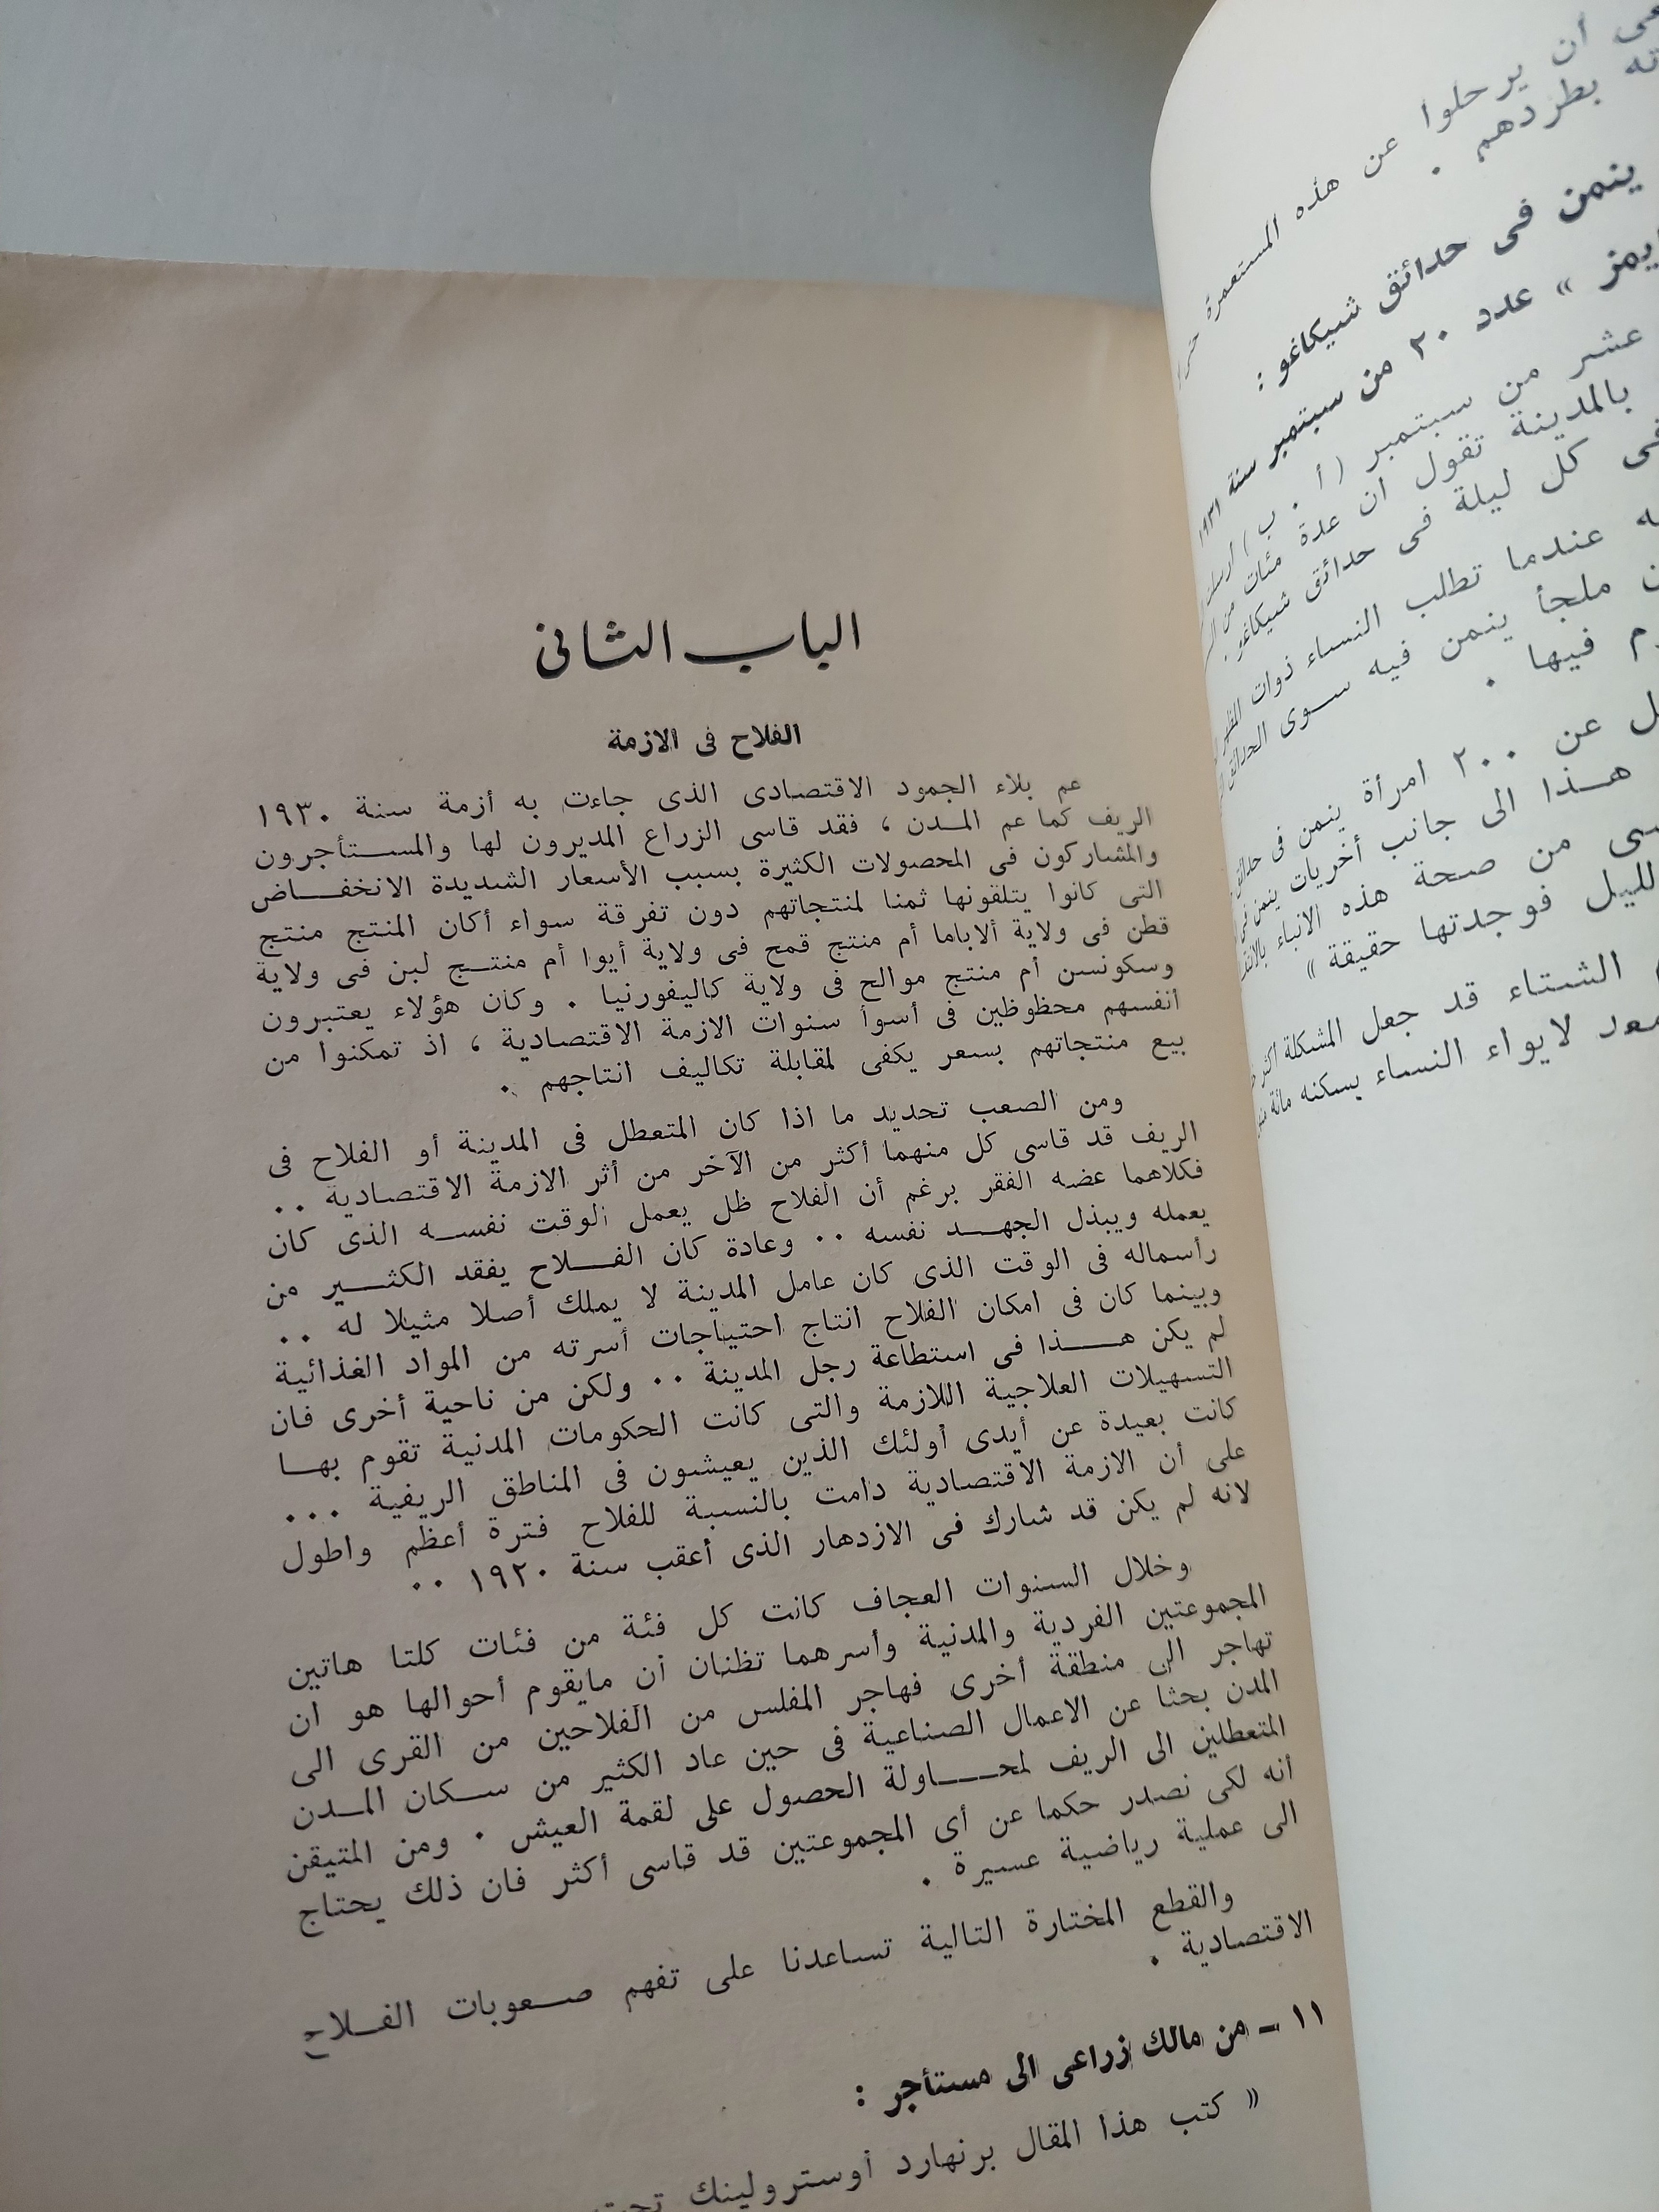 أن يرحلوا عن هذه المستعمرة
بطردهم .
ينمن فى حدائق شيكاغو :
» عدد ٢٠ من سبتمبر سنة ١٩٣١
عشر من سبتمبر ( أ . ب )
بالمدينة تقول ان عدة مئات من
كل ليلة فى حدائق شيكاغو .
عندما تطلب النساء ذوات
ملجأ ينمن فيه سوى الحدائق
فيها .
عن ٢٠٠ امرأة ينمن فى حدائق
هذا الى جانب أخريات ينمن فى
من صحة هذه الانباء
الليل فوجدتها حقيقة »
الشتاء قد جعل المشكلة أكثر
لايواء النساء يسكنه مائة
الباب الثانى
الفلاح فى الازمة
عم بلاء الجمود الاقتصادى الذى جاءت به أزمة سنة ١٩٣٠
الريف كما عم المدن ، فقد قاسى الزراع المديرون لها والمستأجرون
والمشاركون فى المحصولات الكثيرة بسبب الأسعار الشديدة الانخفاض
التى كانوا يتلقونها ثمنا لمنتجاتهم دون تفرقة سواء أكان المنتج منتج
قطن فى ولاية ألاباما أم منتج قمح فى ولاية أيوا أم منتج لبن فى ولاية
وسكونسن أم منتج موالح فى ولاية كاليفورنيا . وكان هؤلاء يعتبرون
أنفسهم محظوظين فى أسوأ سنوات الازمة الاقتصادية ، اذ تمكنوا من
بيع منتجاتهم بسعر يكفى لمقابلة تكاليف انتاجهم .
ومن الصعب تحديد ما اذا كان المتعطل فى المدينة أو الفلاح فى
الريف قد قاسى كل منهما أكثر من الآخر من أثر الازمة الاقتصادية ..
فكلاهما عضه الفقر برغم أن الفلاح ظل يعمل الوقت نفسه الذى كان
يعمله ويبذل الجهد نفسه .. وعادة كان الفلاح يفقد الكثير من
رأسماله فى الوقت الذى كان عامل المدينة لا يملك أصلا مثيلا له ..
وبينما كان فى امكان الفلاح انتاج احتياجات أسرته من المواد الغذائية
لم يكن هذا فى استطاعة رجل المدينة .. ولكن من ناحية أخرى فان
التسهيلات العلاجية اللازمة والتى كانت الحكومات المدنية تقوم بها
كانت بعيدة عن أيدى أولئك الذين يعيشون فى المناطق الريفية ...
على أن الازمة الاقتصادية دامت بالنسبة للفلاح فترة أعظم واطول
لانه لم يكن قد شارك فى الازدهار الذى أعقب سنة ١٩٢٠ ..
وخلال السنوات العجاف كانت كل فئة من فئات كلتا هاتين
المجموعتين الفردية والمدنية وأسرهما تظنان أن مايقوم أحوالها هو ان
تهاجر الى منطقة أخرى فهاجر المفلس من الفلاحين من القرى الى
المدن بحثا عن الاعمال الصناعية فى حين عاد الكثير من سكان المدن
المتعطلين الى الريف لمحاولة الحصول على لقمة العيش . ومن المتيقن
أنه لكى نصدر حكما عن أى المجموعتين قد قاسى أكثر فان ذلك يحتاج
الى عملية رياضية عسيرة .
والقطع المختارة التالية تساعدنا على تفهم صعوبات الفلاح
الاقتصادية .
١١ - من مالك زراعى الى مستأجر :
« كتب هذا المقال برنهارد أوسترولينك